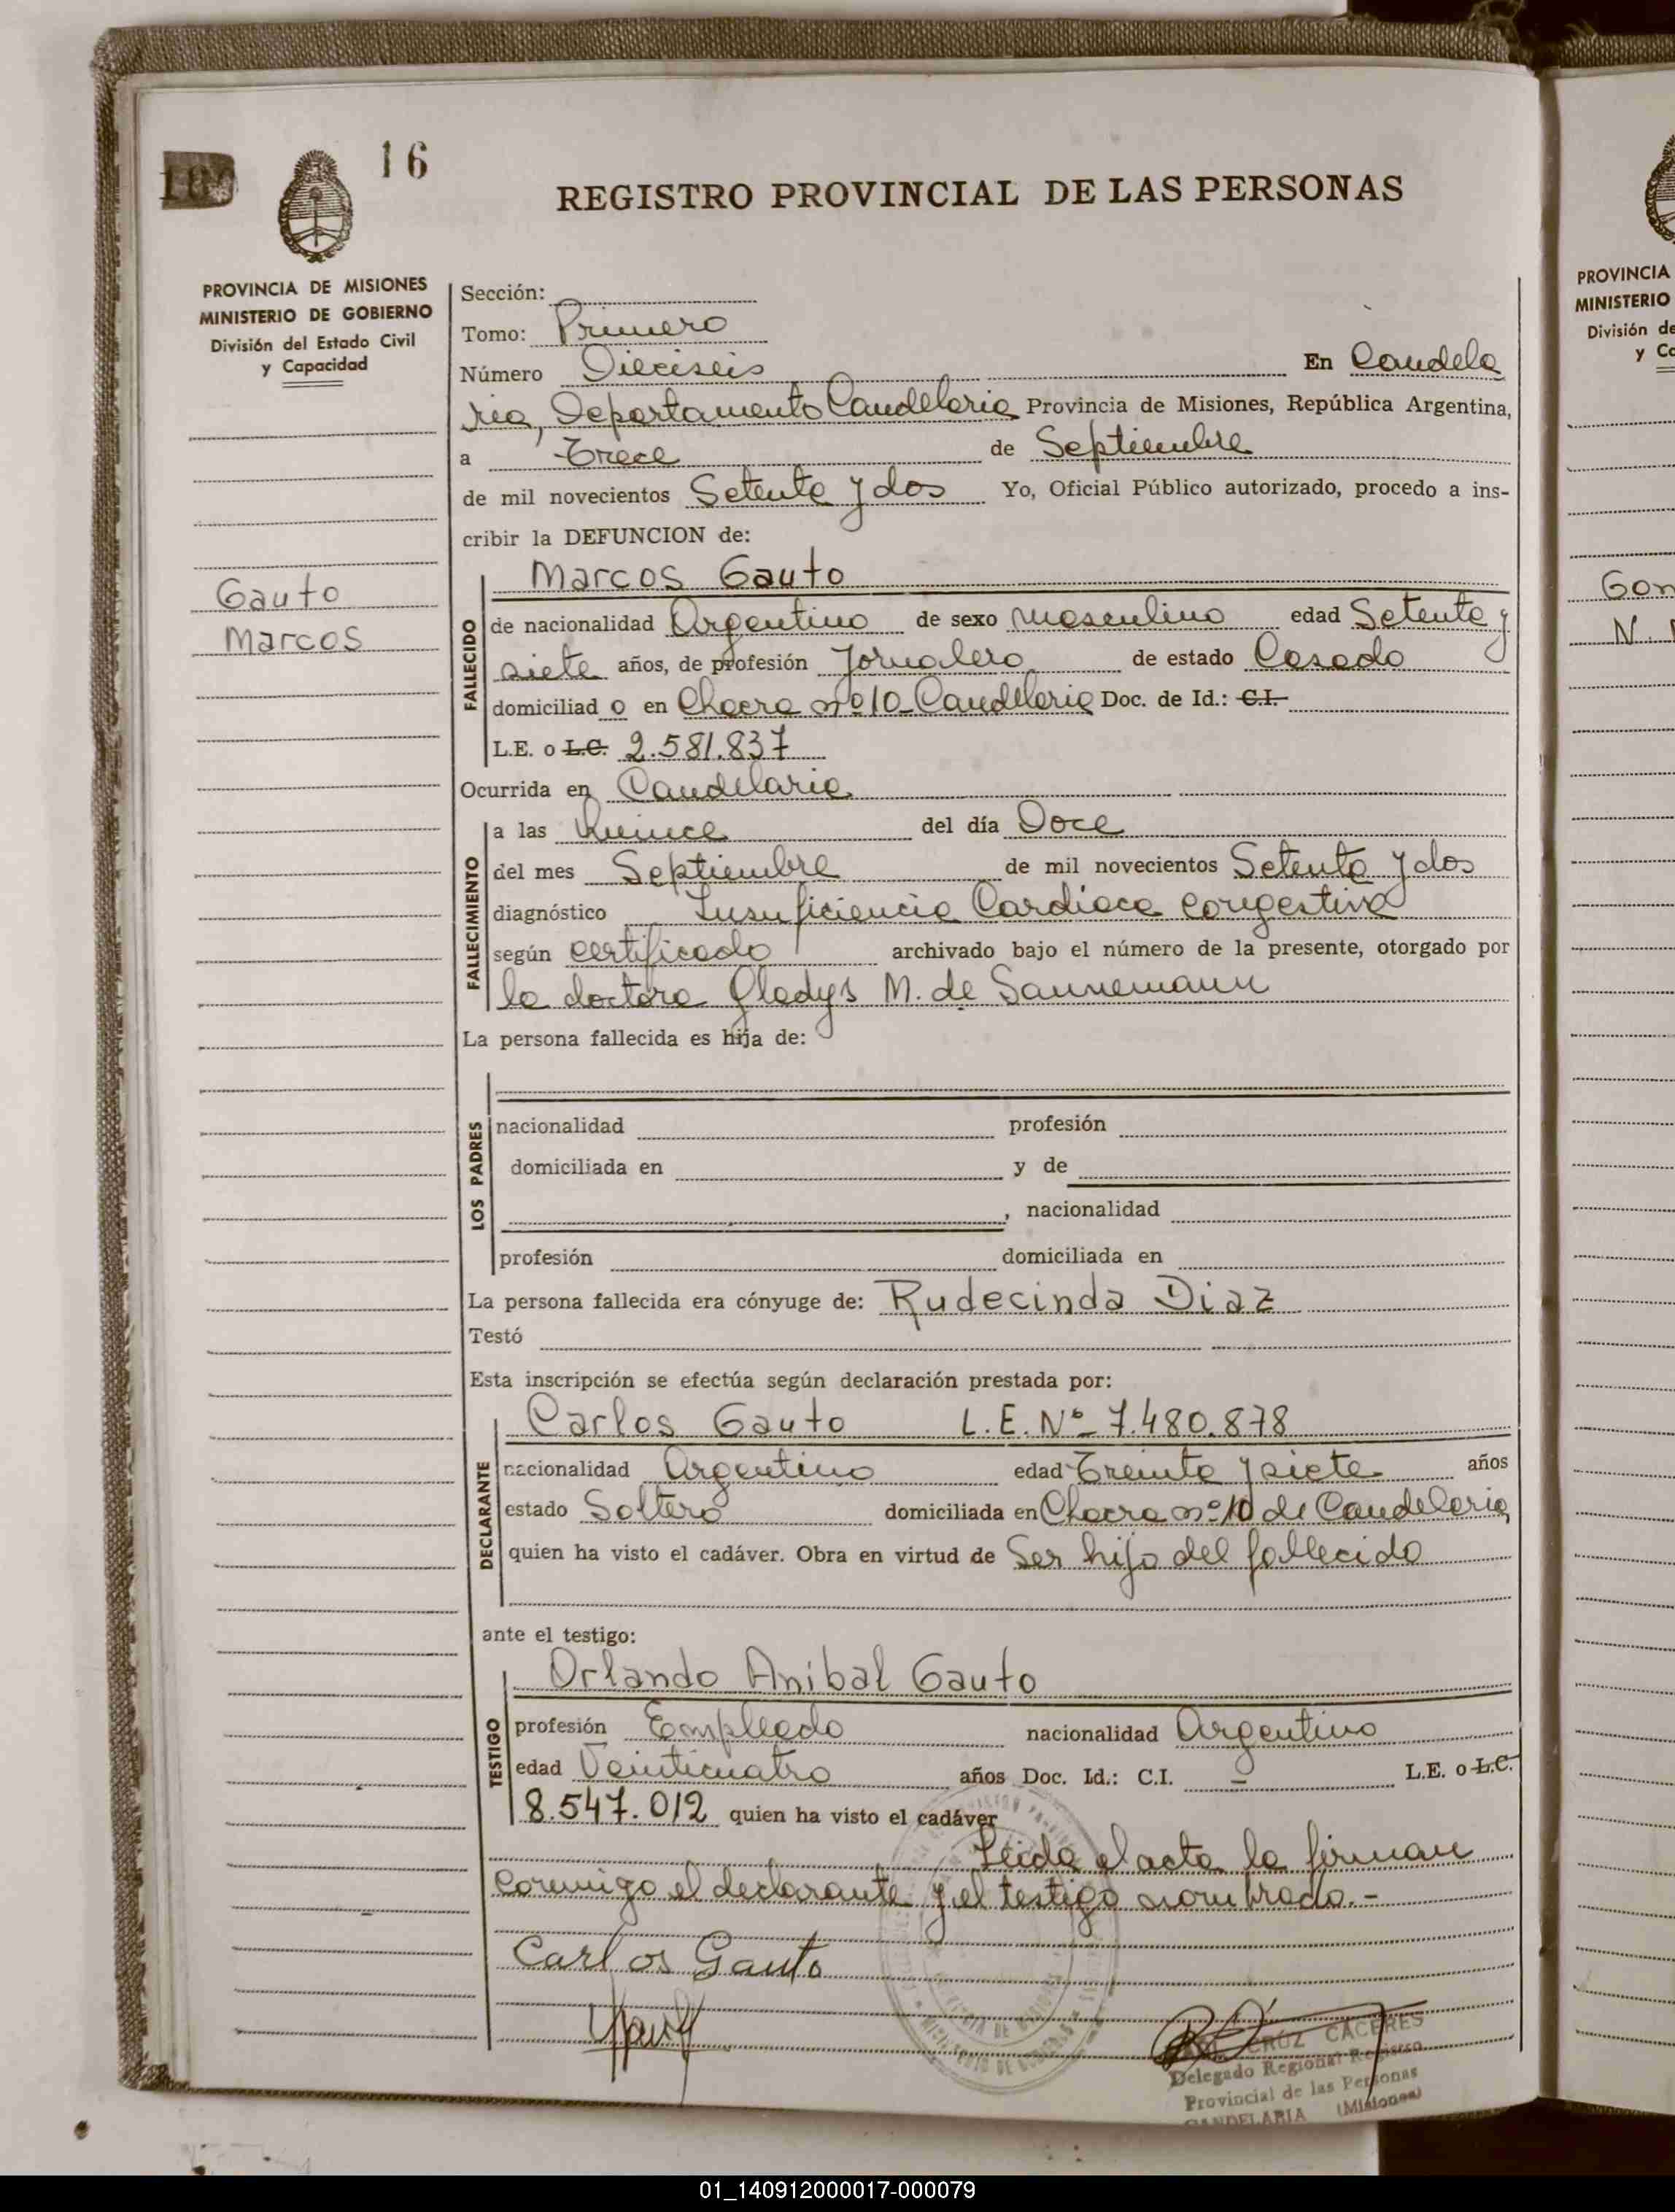 16
REGISTRO PROVINCIAL DE LAS PERSONAS
PROVINCIA DE MISIONES
MINISTERIO DE GOBIERNO
División del Estado Civil
y Capacidad
Gauto
Marcos
Sección:
Tomo: Primero
Número Dieciseis En Candela
ria, Departamento Candelaria Provincia de Misiones, República Argentina,
a Trece de Septiembre
de mil novecientos Setenta y dos Yo, Oficial Público autorizado, procedo a ins-
cribir la DEFUNCION de:
FALLECIDO
Marcos Gauto
de nacionalidad Argentino de sexo masculino edad Setenta y
siete años, de profesión Jornalero de estado Casado
domiciliad o en Chacra nº 10 - Candelaria Doc. de Id.: C.I.
L.E. o L.C. 2.581.837
Ocurrida en Candelaria
FALLECIMIENTO
a las Quince del día Doce
del mes Septiembre de mil novecientos Setenta y dos
diagnóstico Insuficiencia Cardiaca congestiva
según certificado archivado bajo el número de la presente, otorgado por
la doctora Gladys M. de Sannemann
La persona fallecida es hija de:
LOS PADRES
nacionalidad profesión
domiciliada en y de
, nacionalidad
profesión domiciliada en
La persona fallecida era cónyuge de: Rudecinda Diaz
Testó
Esta inscripción se efectúa según declaración prestada por:
DECLARANTE
Carlos Gauto L.E. Nº 7.480.878
nacionalidad Argentino edad Treinta y siete años
estado Soltero domiciliada en Chacra nº 10 de Candelaria,
quien ha visto el cadáver. Obra en virtud de Ser hijo del fallecido
ante el testigo:
TESTIGO
Orlando Anibal Gauto
profesión Empleado nacionalidad Argentino
edad Veinticuatro años Doc. Id.: C.I. - L.E. o L.C.
8.547.012 quien ha visto el cadáver
Leida el acta la firman
conmigo el declarante y el testigo nombrado.-
Carlos Gauto
CRUZ CACERES
Delegado Regional Registro
Provincial de las Personas
CANDELARIA (Misiones)
PROVINCIA
MINISTERIO
División de
y Ca
Gon
N.
01_140912000017-000079